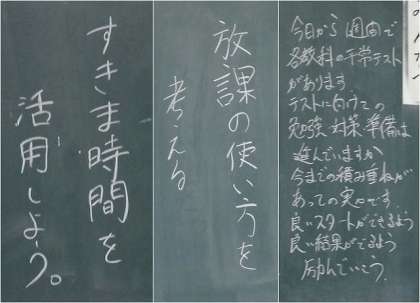 すきま時間を
活用しよう。
放課の使い方を
考える
今日から1週間で
各教科の平常テスト
があります
テストに向けての
勉強 対策 準備は
進んでいますか
今までの積み重ねが
あっての実力です.
良いスタートができるよう
良い結果がでるよう
励んでいこう